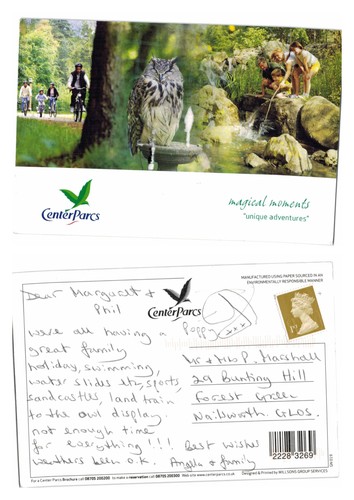 CenterParcs
magical moments
"unique adventures"
MANUFACTURED USING PAPER SOURCED IN AN
ENVIRONMENTALLY RESPONSIBLE MANNER
CenterParcs
1st
Dear Margaret &
Phil
were all having a
great family
holiday, swimming,
water slides etc, sports,
sandcastles, land train
to the owl display.
not enough time
for everything!!!
weathers been O.K.
Poppy
xxx
Best wishes
Angela & family
Mr & Mrs P. Marshall
29 Bunting Hill
Forest Green
Nailsworth. GLOS.
2228 3269
For a Center Parcs Brochure call 08705 200200 to make a reservation call 08705 200300 www.centerparcs.co.uk
Designed & Printed by MILLSONS GROUP SERVICES